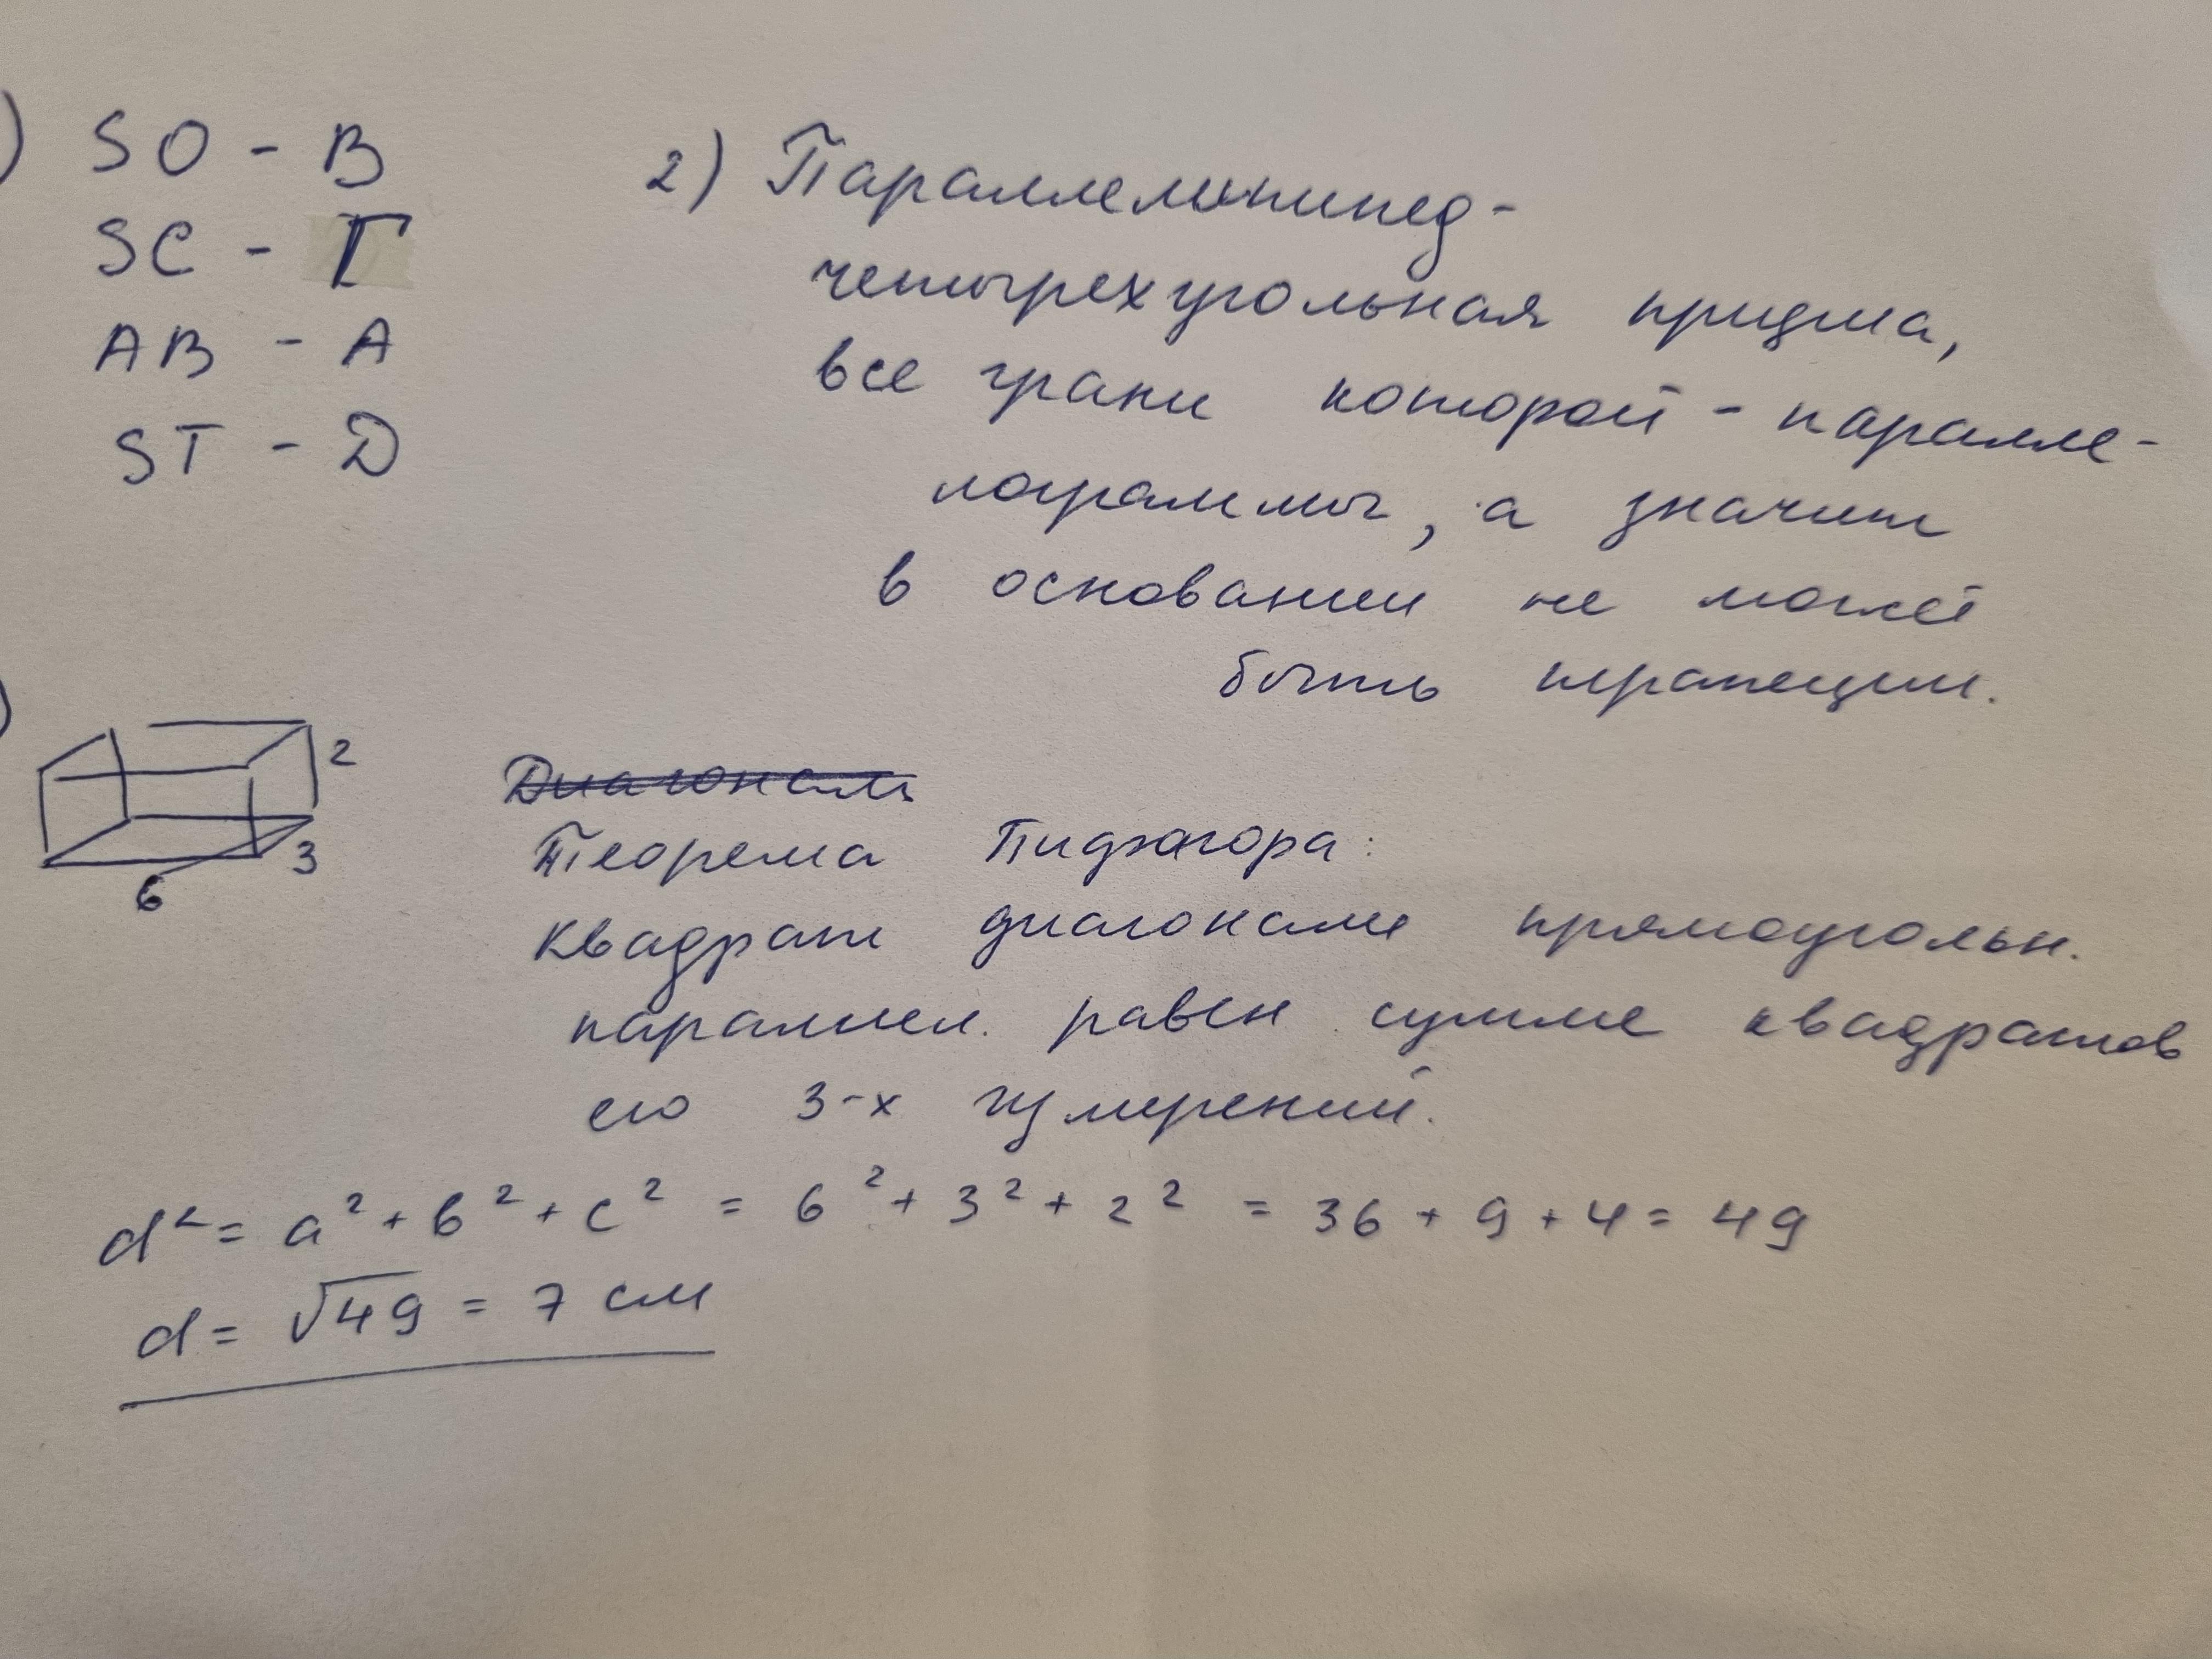 ) SO - В
SC - Г
AB - A
ST - D
2) Параллелипипед -
четырехугольная призма,
все грани которой - паралле-
лограммы, а значит
в основании не может
быть трапеции.
2
3
6
Диагональ
Теорема Пифагора:
квадрат диагонали прямоугольн.
параллел. равен сумме квадратов
его 3-х измерений.
d² = a² + b² + c² = 6² + 3² + 2² = 36 + 9 + 4 = 49
d = √49 = 7 см